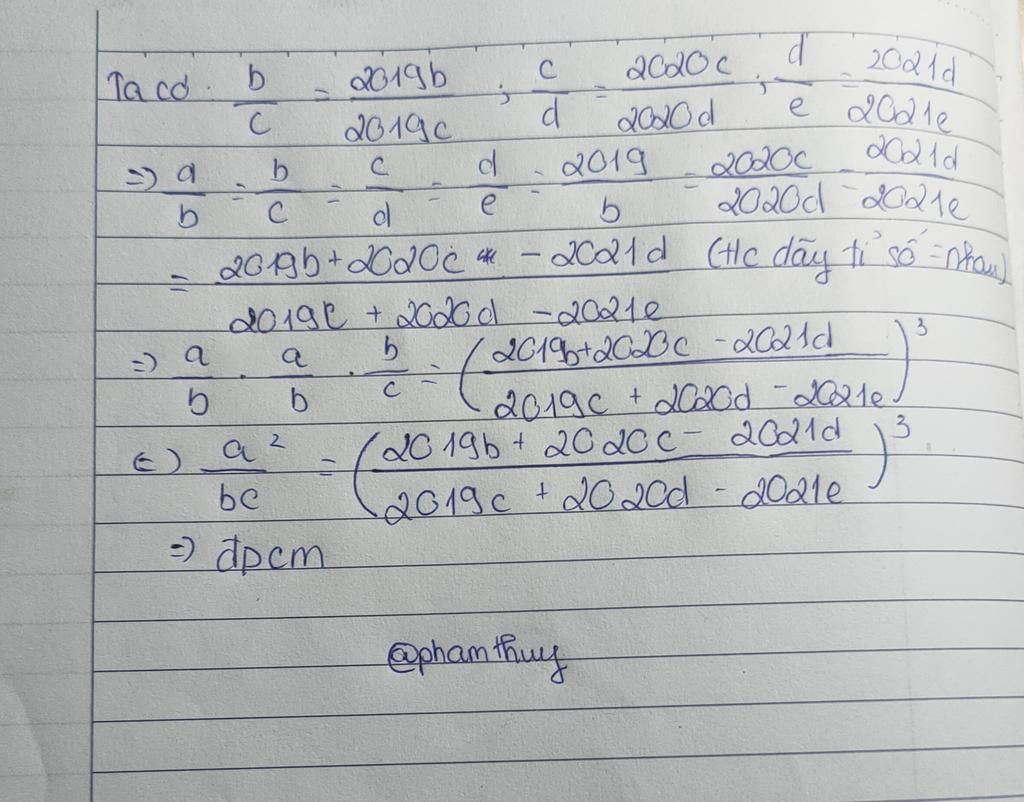 Ta có: b/c = 2019b/2019c ; c/d = 2020c/2020d ; d/e = 2021d/2021e
=> a/b = b/c = c/d = d/e = 2019/b = 2020c/2020d = 2021d/2021e
= (2019b + 2020c - 2021d)/(2019c + 2020d - 2021e) (t/c dãy tỉ số = nhau)
=> a/b . a/b . b/c = ((2019b + 2020c - 2021d)/(2019c + 2020d - 2021e))³
(=) a²/bc = ((2019b + 2020c - 2021d)/(2019c + 2020d - 2021e))³
=> đpcm
@phamthuy